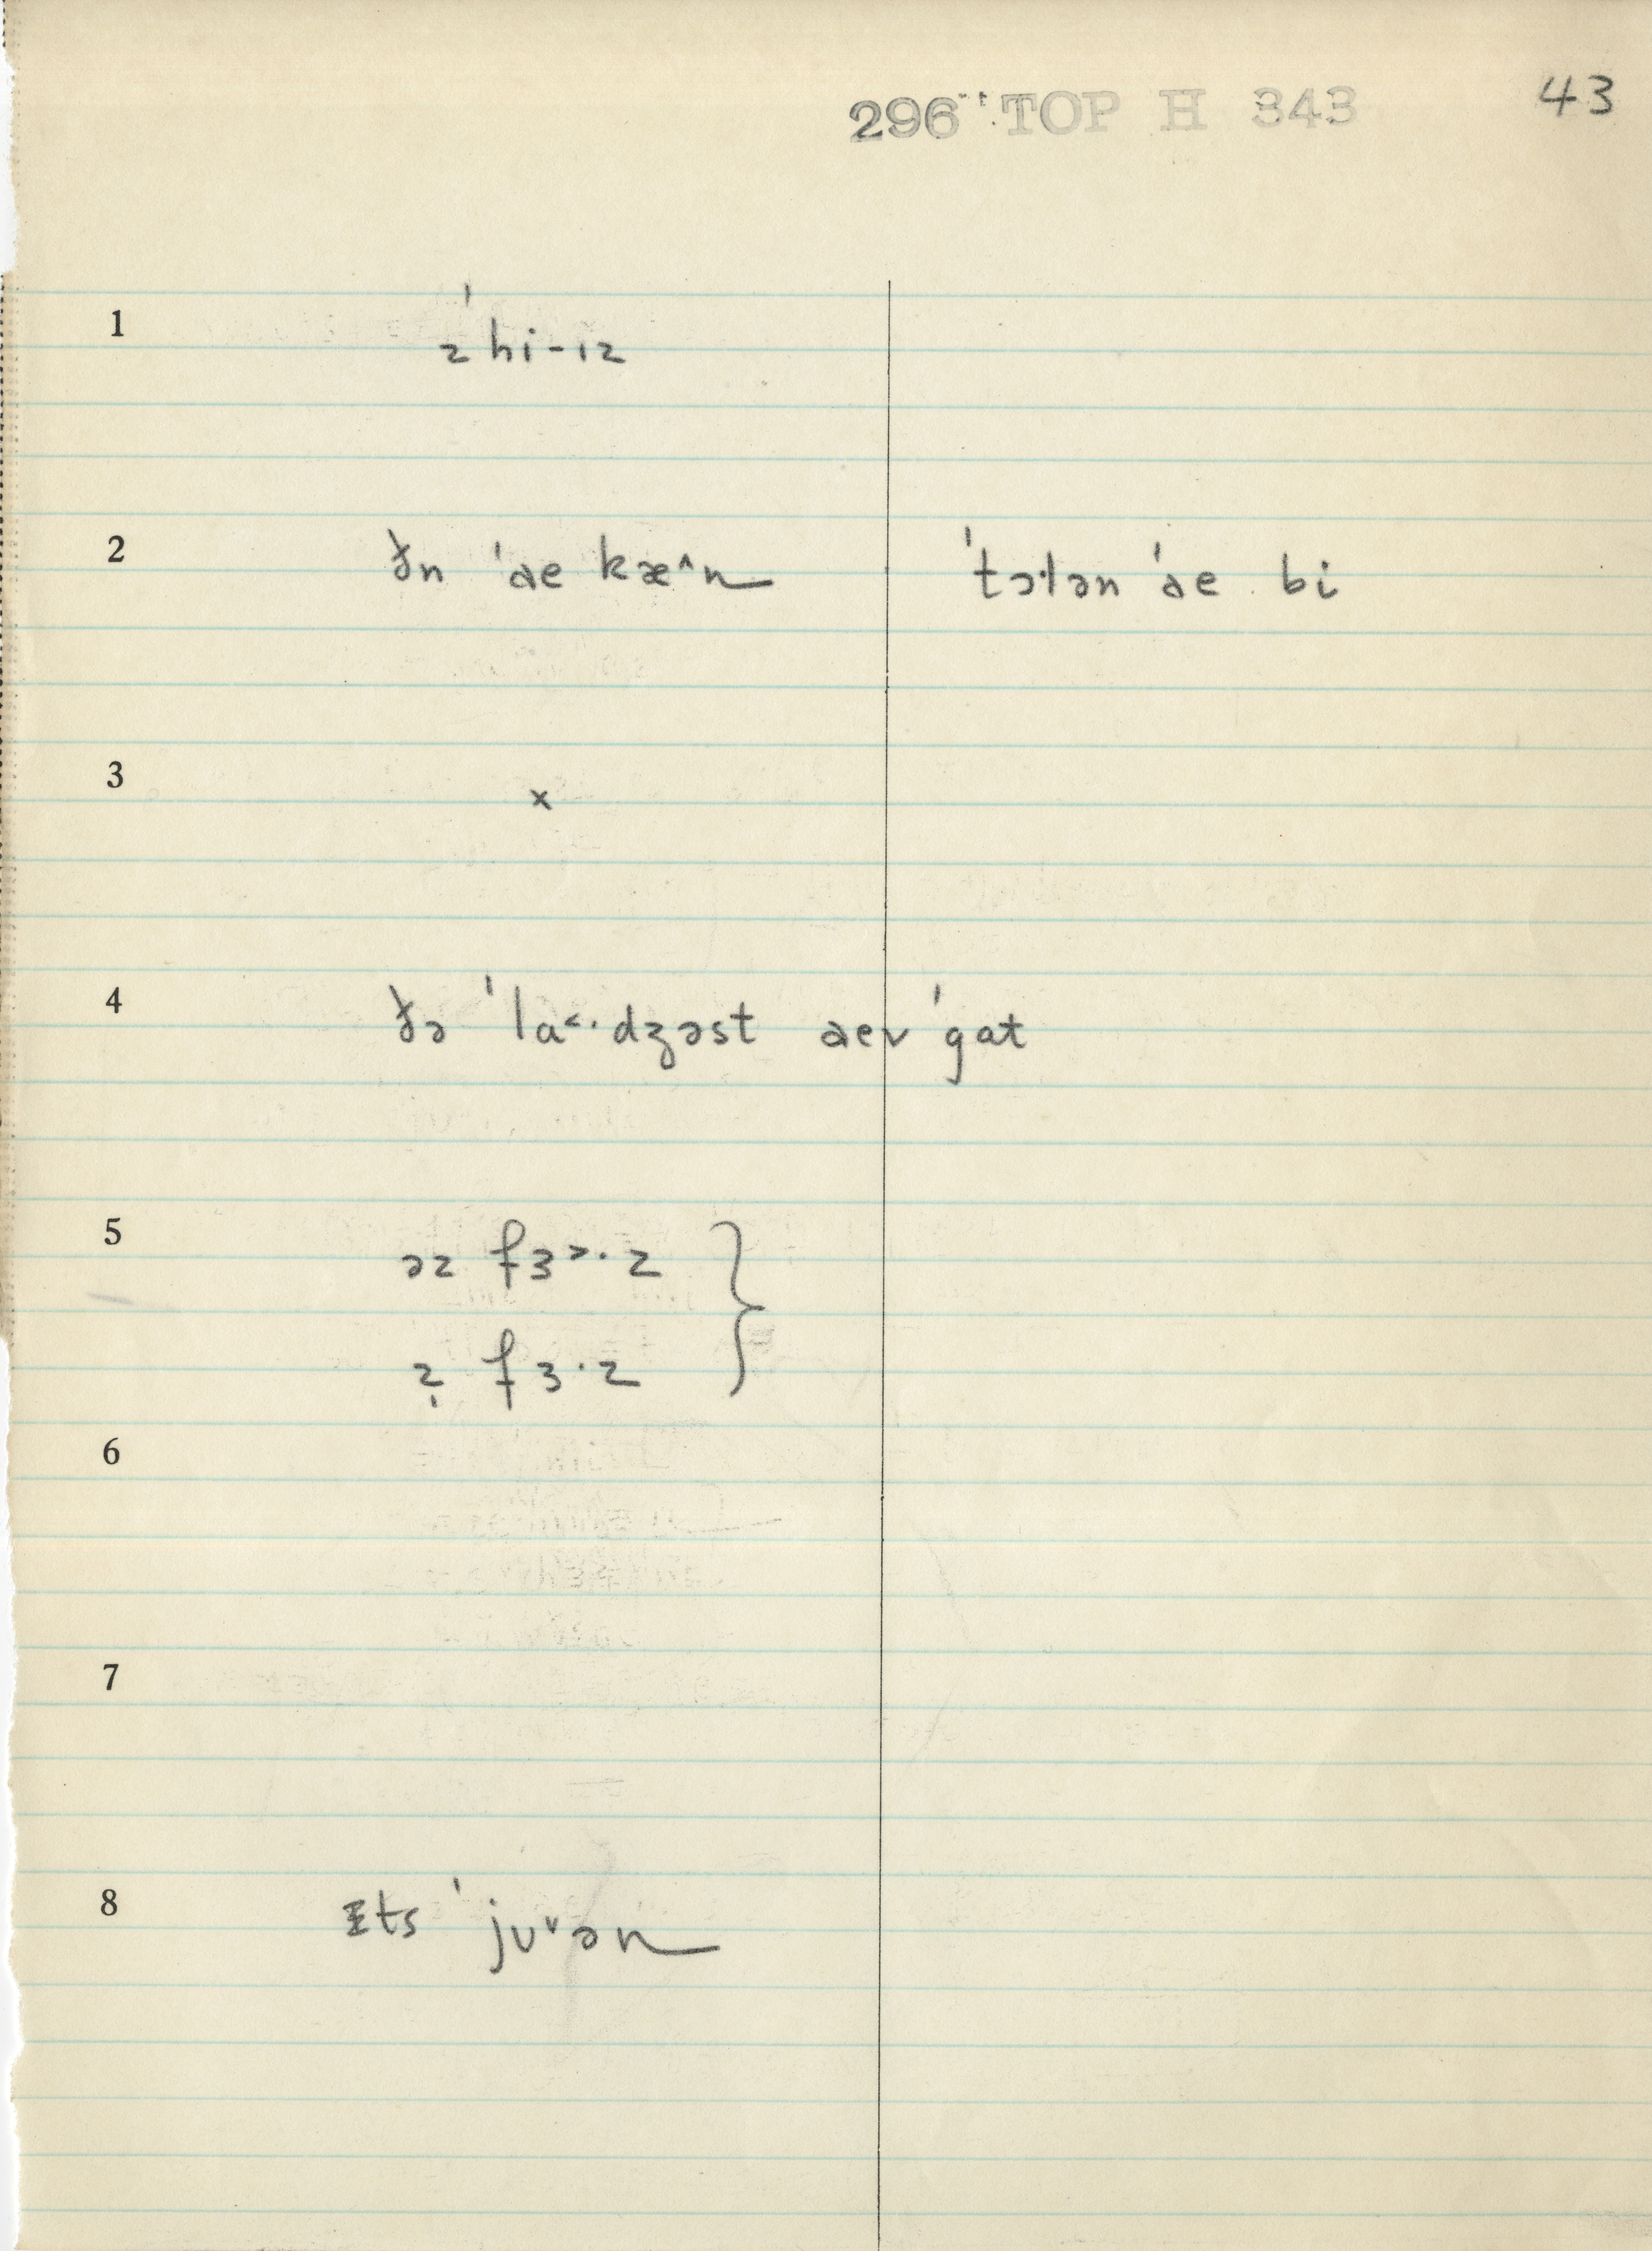 296 TOP H 343 43
1 ˈz hi-ɪz
2 ðn ˈae kæ^n ˈtɔlən ˈae bi
3 x
4 ðə ˈla<·dʒəst aev ˈgat
5 əz fɜ>·z
z̩ fɜ·z
6
7
8 ɪts ˈjuᵛən